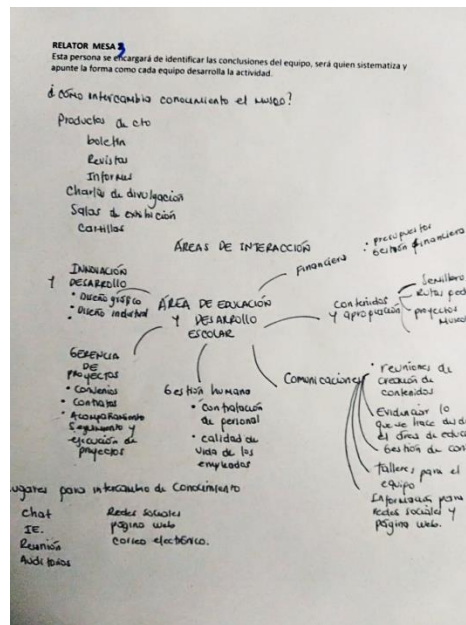 RELATOR MESA 3
Esta persona se encargará de identificar las conclusiones del equipo, será quien sistematiza y
apunte la forma como cada equipo desarrolla la actividad.
¿Cómo intercambia conocimiento el museo?
Productos de cto
boletín
Revistas
Informes
Charlas de divulgación
Salas de exhibición
Cartillas
ÁREAS DE INTERACCIÓN
INNOVACIÓN
Y DESARROLLO
• Diseño gráfico
• Diseño industrial
ÁREA DE EDUCACIÓN
Y DESARROLLO
ESCOLAR
Financiera
• presupuestos
• Gestión financiera
Contenidos
y apropiación
Semillero
Rutas
proyectos
GERENCIA
DE
PROYECTOS
• Convenios
• Contratos
• Acompañamiento
Seguimiento y
ejecución de
proyectos
Gestión humana
• Contratación
de personal
• calidad de
vida de los
empleados
Comunicaciones
• reuniones de
creación de
contenidos
Evidenciar lo
que se hace desde
el área de
Gestión de
Talleres para el
equipo
Información para
redes sociales y
página web.
ugares para intercambio de Conocimiento
Chat
IE.
Reunión
Auditorios
Redes sociales
página web
correo electrónico.